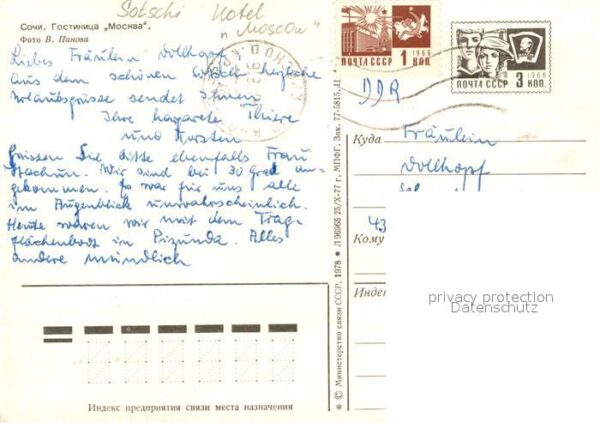 Sotschi Hotel
"Moscow"
Сочи. Гостиница „Москва".
Фото В. Панова
Liebes Fräulein Dollhopf,
aus dem schönen herzliche
Urlaubsgrüsse sendet Ihnen
Ihre
und
Grüssen Sie bitte ebenfalls Frau
Wir sind bei 30 Grad an-
gekommen. Es war für uns alle
im Augenblick unwahrscheinlich.
Heute waren wir mit dem Trag-
flächenboot in Pizunda. Alles
andere mündlich
ПОЧТА СССР 1966 1 КОП.
ПОЧТА СССР 1966 3 КОП.
DDR
Куда Fräulein
Dollhopf
43
Кому
Индекс
privacy protection
Datenschutz
© Министерство связи СССР, 1978 • Л 96965 25/X-77 г. МПФГ. Зак. 77-5815.
Индекс предприятия связи места назначения